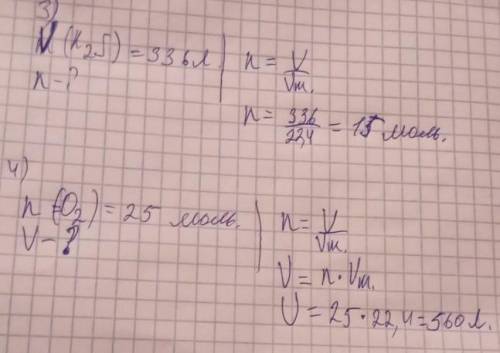 3)
V(H₂S) = 336 л. | n = V/Vm.
n - ? | n = 336/22,4 = 15 моль.
4)
n (O₂) = 25 моль. | n = V/Vm.
V - ? | V = n · Vm.
V = 25 · 22,4 = 560 л.